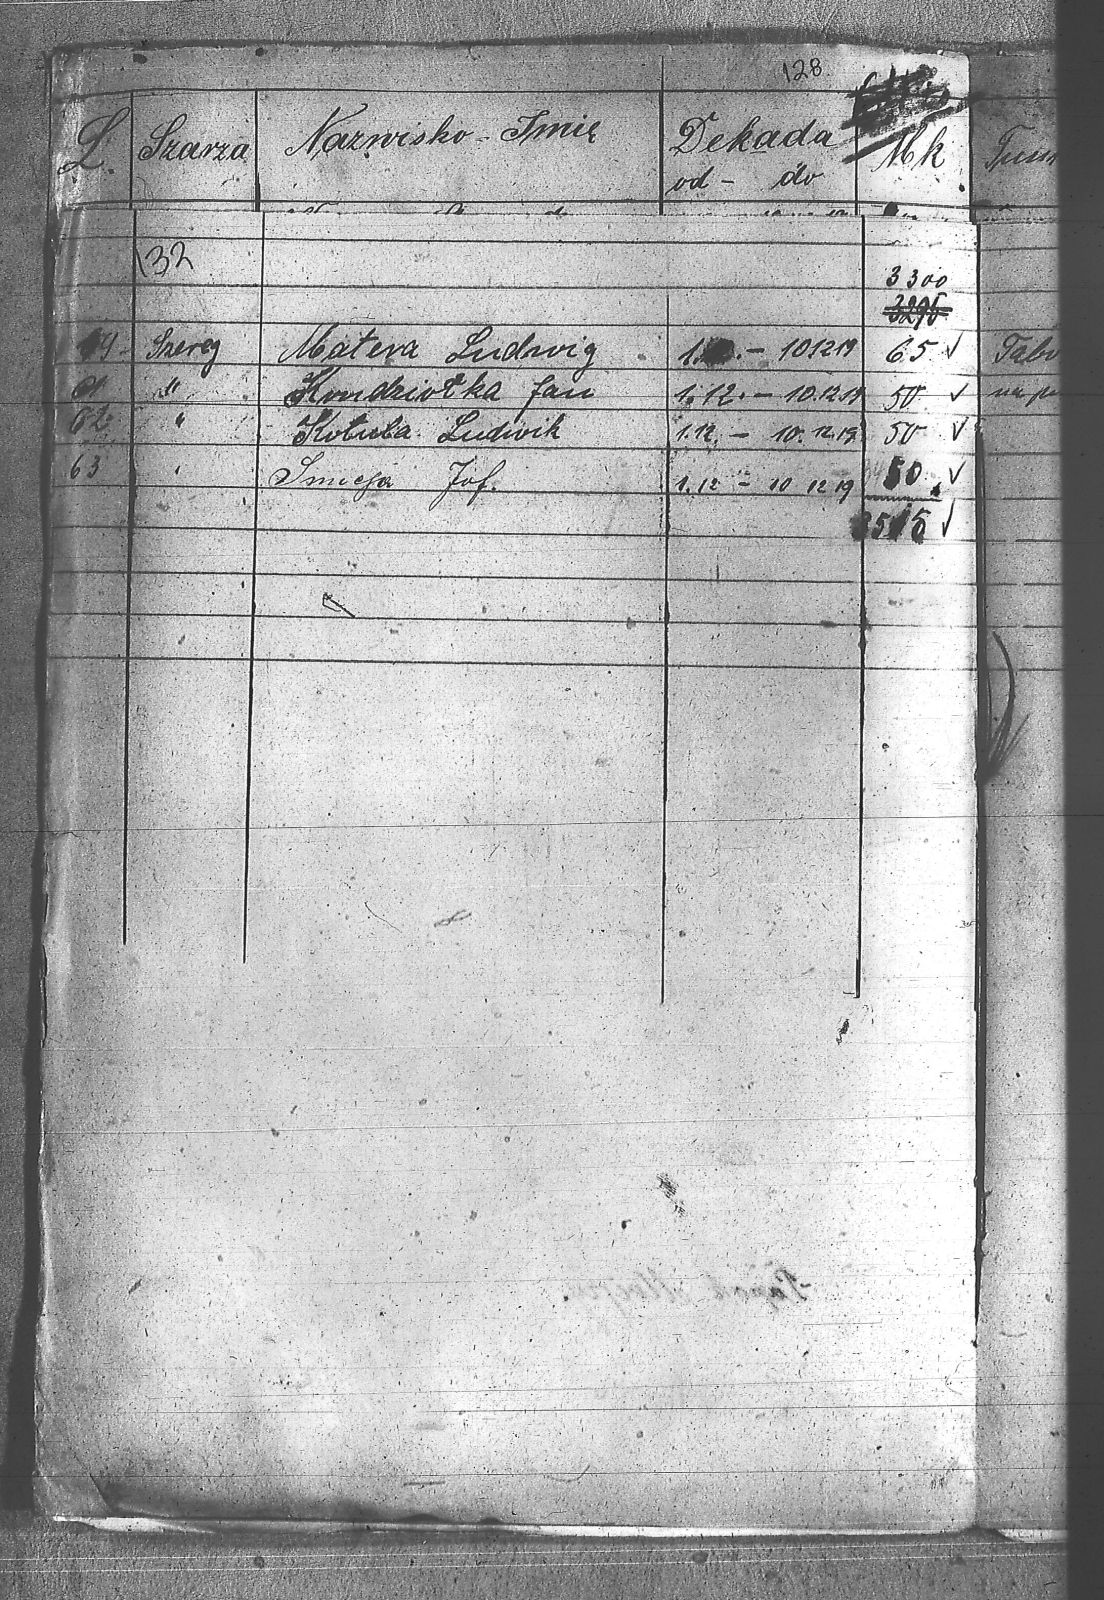 128
L. Szarża Nazwisko - Imię Dekada od - do Mk
132
3300
3295
59 Szereg Matera Ludwig 1. - 10 12 19 65 ✓
61 " Kondziołka Jan 1.12. - 10.12.19 50 ✓
62 " Kotula Ludwik 1.12. - 10.12.19 50 ✓
63 " Jóf. 1.12 - 10 12 19 50 ✓
3515 ✓